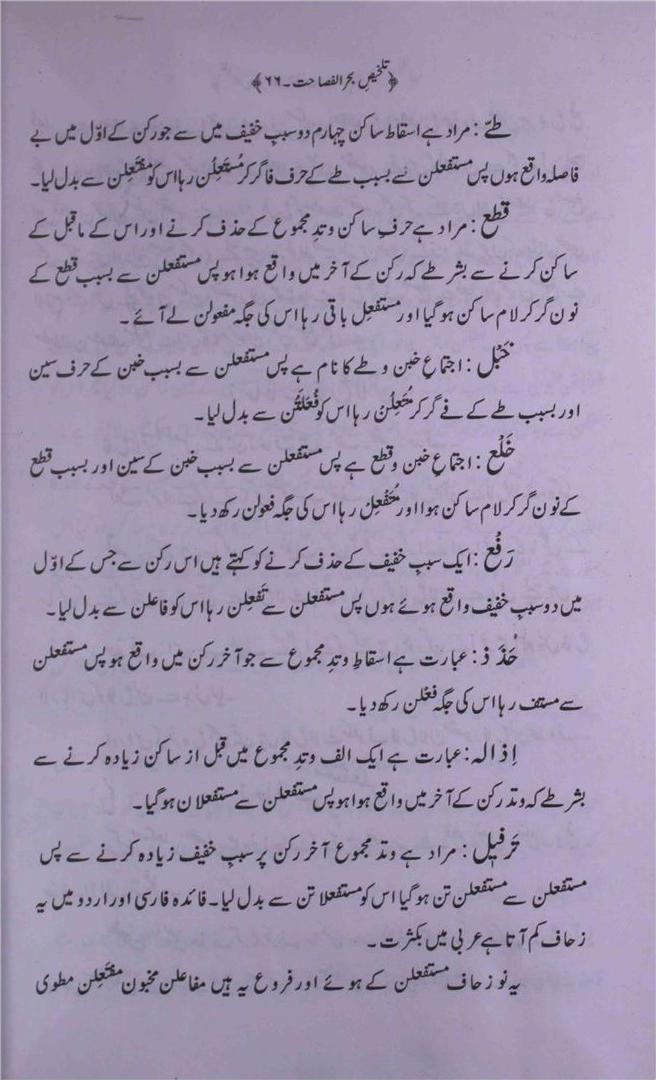 ﴿تلخیصِ بحر الفصاحت۔۶۶﴾
طَے: مراد ہے اسقاط ساکن چہارم دو سببِ خفیف میں سے جو رکن کے اوّل میں بے
فاصلہ واقع ہوں پس مستفعلن سے بسبب طے کے حرف فا گر کر مُستَعِلُن رہا اس کو مفتَعِلن سے بدل لیا۔
قطع: مراد ہے حرفِ ساکن وتدِ مجموع کے حذف کرنے اور اس کے ماقبل کے
ساکن کرنے سے بشرطے کہ رکن کے آخر میں واقع ہوا ہو پس مستفعلن سے بسبب قطع کے
نون گر کر لام ساکن ہو گیا اور مستفعِل باقی رہا اس کی جگہ مفعولن لے آئے۔
خَبْل: اجتماعِ خبن و طے کا نام ہے پس مستفعلن سے بسبب خبن کے حرف سین
اور بسبب طے کے فے گر کر مُتَعِلُن رہا اس کو فَعَلَتُن سے بدل لیا۔
خَلْع: اجتماعِ خبن و قطع ہے پس مستفعلن سے بسبب خبن کے سین اور بسبب قطع
کے نون گر کر لام ساکن ہوا اور مُتَفْعِلْ رہا اس کی جگہ فعولن رکھ دیا۔
رَفْع: ایک سببِ خفیف کے حذف کرنے کو کہتے ہیں اس رکن سے جس کے اوّل
میں دو سببِ خفیف واقع ہوئے ہوں پس مستفعلن سے تَفعِلن رہا اس کو فاعلن سے بدل لیا۔
حَذَ ذ: عبارت ہے اسقاطِ وتدِ مجموع سے جو آخر رکن میں واقع ہو پس مستفعلن
سے مستف رہا اس کی جگہ فعْلن رکھ دیا۔
اِذالہ: عبارت ہے ایک الف وتدِ مجموع میں قبل از ساکن زیادہ کرنے سے
بشرطے کہ وتد رکن کے آخر میں واقع ہوا ہو پس مستفعلن سے مستفعلان ہو گیا۔
تَرفیل: مراد ہے وتدِ مجموع آخر رکن پر سببِ خفیف زیادہ کرنے سے پس
مستفعلن سے مستفعلن تن ہو گیا اس کو مستفعلاتن سے بدل لیا۔ فائدہ فارسی اور اردو میں یہ
زحاف کم آتا ہے عربی میں بکثرت۔
یہ نو زحاف مستفعلن کے ہوئے اور فروع یہ ہیں مفاعلن مخبون مفتَعِلن مطوی